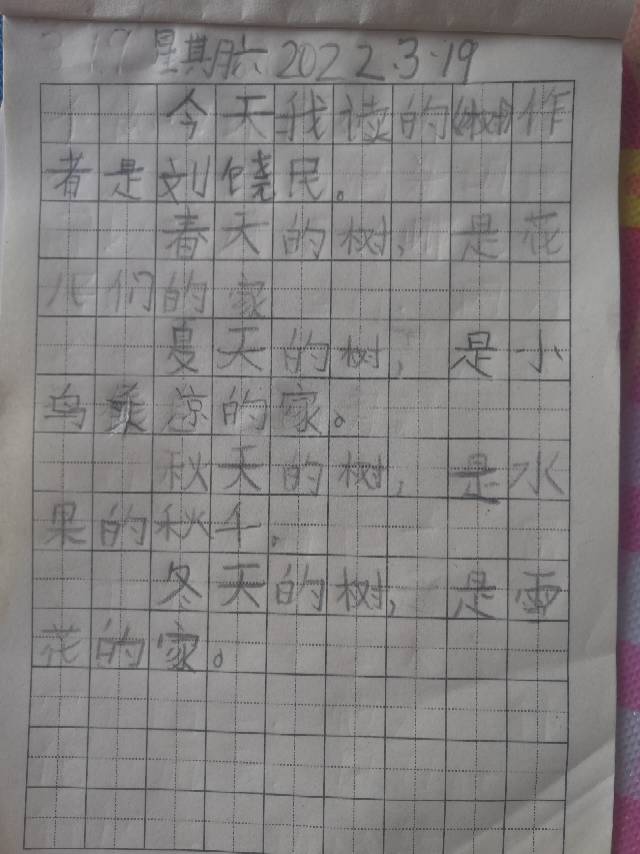 3.19 星期六 2022.3.19
今天我读的《树》作
者是刘饶民。
春天的树，是花
儿们的家
夏天的树，是小
鸟乘凉的家。
秋天的树，是水
果的秋千。
冬天的树，是雪
花的家。